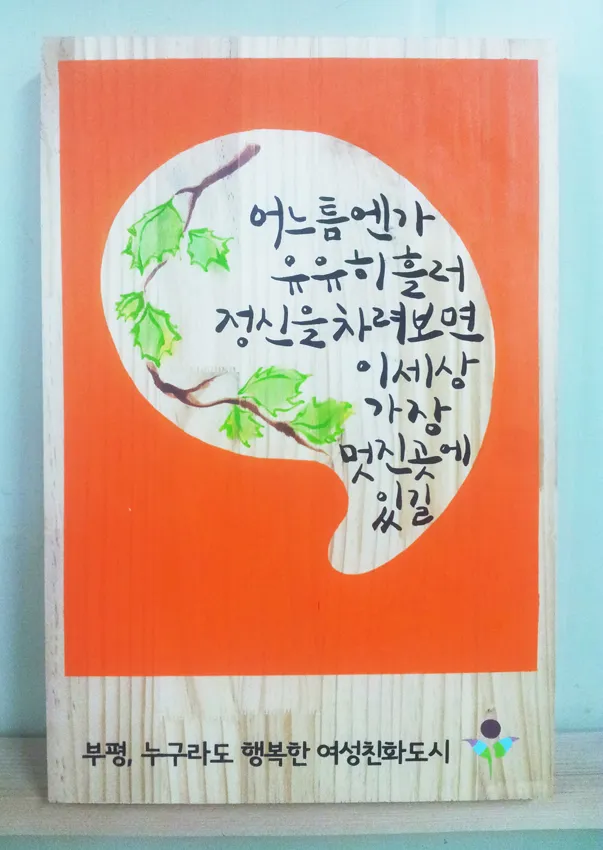 어느틈엔가
유유히흘러
정신을차려보면
이세상
가장
멋진곳에
있길
부평, 누구라도 행복한 여성친화도시